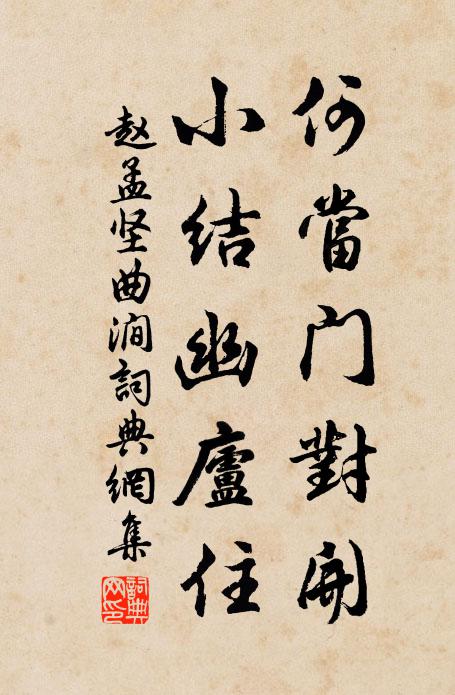 何當門對開
小结幽廬住
赵孟坚曲澗詞典網集
詞典網印